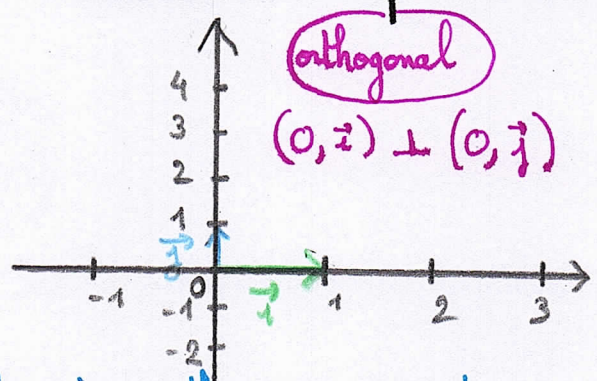 orthogonal
(O, i⃗) ⊥ (O, j⃗)
4
3
2
1
j⃗
0
i⃗
-1 1 2 3
-1
-2